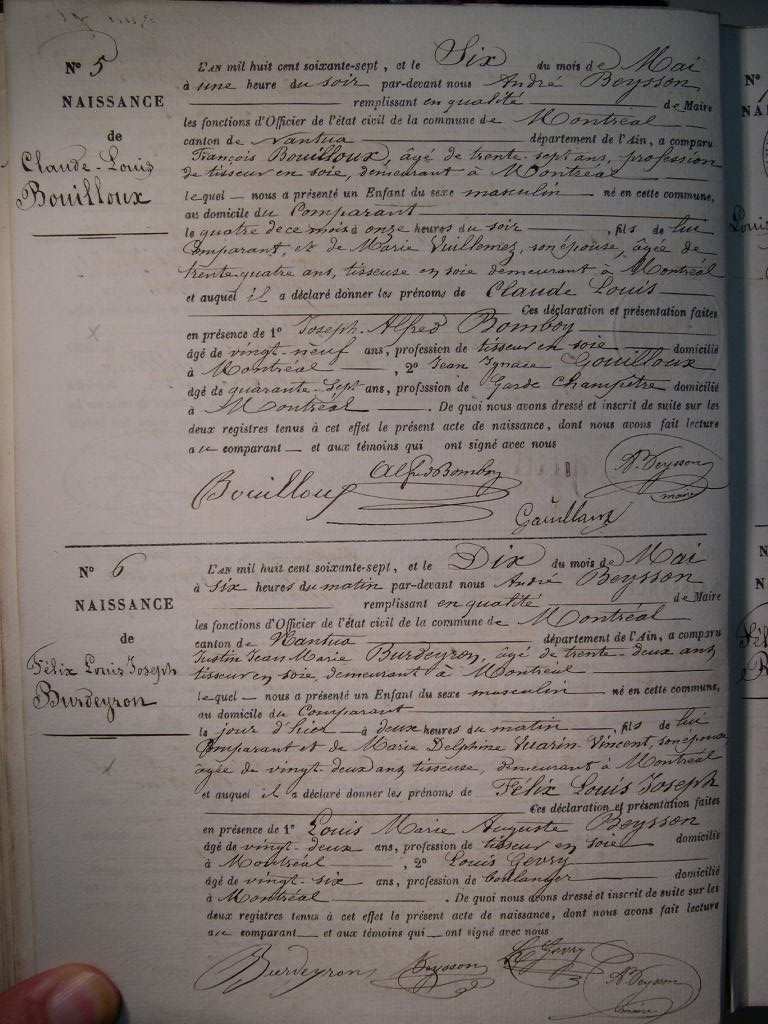 N° 5
NAISSANCE
de
Claude-Louis
Bouilloux
L'AN mil huit cent soixante-sept, et le Six du mois de Mai
à une heure du soir par-devant nous André Beysson
remplissant en qualité de Maire
les fonctions d'Officier de l'état civil de la commune de Montréal
canton de Nantua département de l'Ain, a comparu
François Bouilloux, âgé de trente-sept ans, profession
de tisseur en soie, demeurant à Montréal
lequel nous a présenté un Enfant du sexe masculin né en cette commune,
au domicile du Comparant
le quatre de ce mois à onze heures du soir, fils de lui
Comparant, et de Marie Vuillermoz, son épouse, âgée de
trente quatre ans, tisseuse en soie demeurant à Montréal
et auquel il a déclaré donner les prénoms de Claude Louis
Ces déclaration et présentation faites
en présence de 1° Joseph-Alfred Bomboy
âgé de vingt-neuf ans, profession de tisseur en soie domicilié
à Montréal, 2° Jean Ignace Gouilloux
âgé de quarante-sept ans, profession de Garde Champêtre domicilié
à Montréal. De quoi nous avons dressé et inscrit de suite sur les
deux registres tenus à cet effet le présent acte de naissance, dont nous avons fait lecture
au comparant et aux témoins qui ont signé avec nous
Bouilloux Alfred Bomboy An Beysson
maire
Gouilloux
N° 6
NAISSANCE
de
Félix Louis Joseph
Burdeyron
L'AN mil huit cent soixante-sept, et le Dix du mois de Mai
à six heures du matin par-devant nous André Beysson
remplissant en qualité de Maire
les fonctions d'Officier de l'état civil de la commune de Montréal
canton de Nantua département de l'Ain, a comparu
Justin Jean Marie Burdeyron, âgé de trente-deux ans
tisseur en soie, demeurant à Montréal
lequel nous a présenté un Enfant du sexe masculin né en cette commune,
au domicile du Comparant
le jour d'hier à deux heures du matin, fils de lui
Comparant et de Marie Delphine Vuarin-Vincent, son épouse
âgée de vingt-deux ans, tisseuse, demeurant à Montréal
et auquel il a déclaré donner les prénoms de Félix Louis Joseph
Ces déclaration et présentation faites
en présence de 1° Louis Marie Auguste Beysson
âgé de vingt-deux ans, profession de tisseur en soie domicilié
à Montréal, 2° Louis Gevry
âgé de vingt-six ans, profession de boulanger domicilié
à Montréal. De quoi nous avons dressé et inscrit de suite sur les
deux registres tenus à cet effet le présent acte de naissance, dont nous avons fait lecture
au comparant et aux témoins qui ont signé avec nous
Burdeyron Beysson L Gevry An Beysson
maire